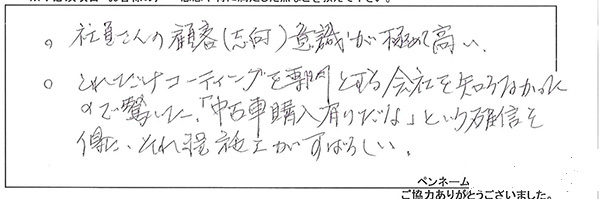 。社員さんの顧客(志向)意識が極めて高い。
。これだけコーティングを専門とする会社を知らなかった
ので驚いた。「中古車購入有りだな」という確信を
得た、それ程施工がすばらしい。
ペンネーム
ご協力ありがとうございました。